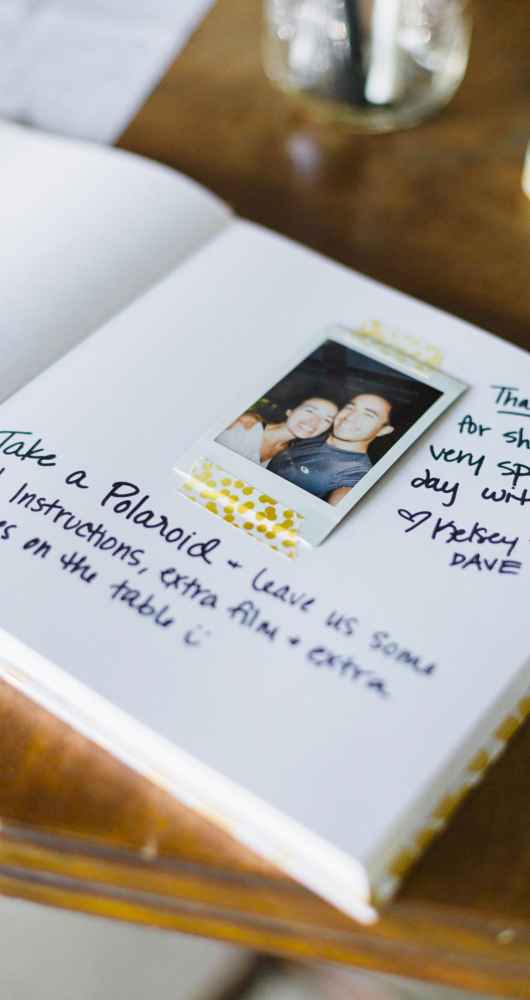 Take a Polaroid + leave us some
Instructions, extra film + extra
es on the table :)
Tha
for sh
very sp
day with
♡ Kelsey
DAVE